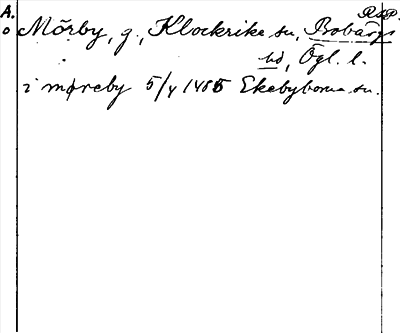 A. RäP.
o Mörby, g., Klockrike sn, Bobärgs
hd, Ögl. l.
i møreby 5/4 1455 Ekebyborna sn.